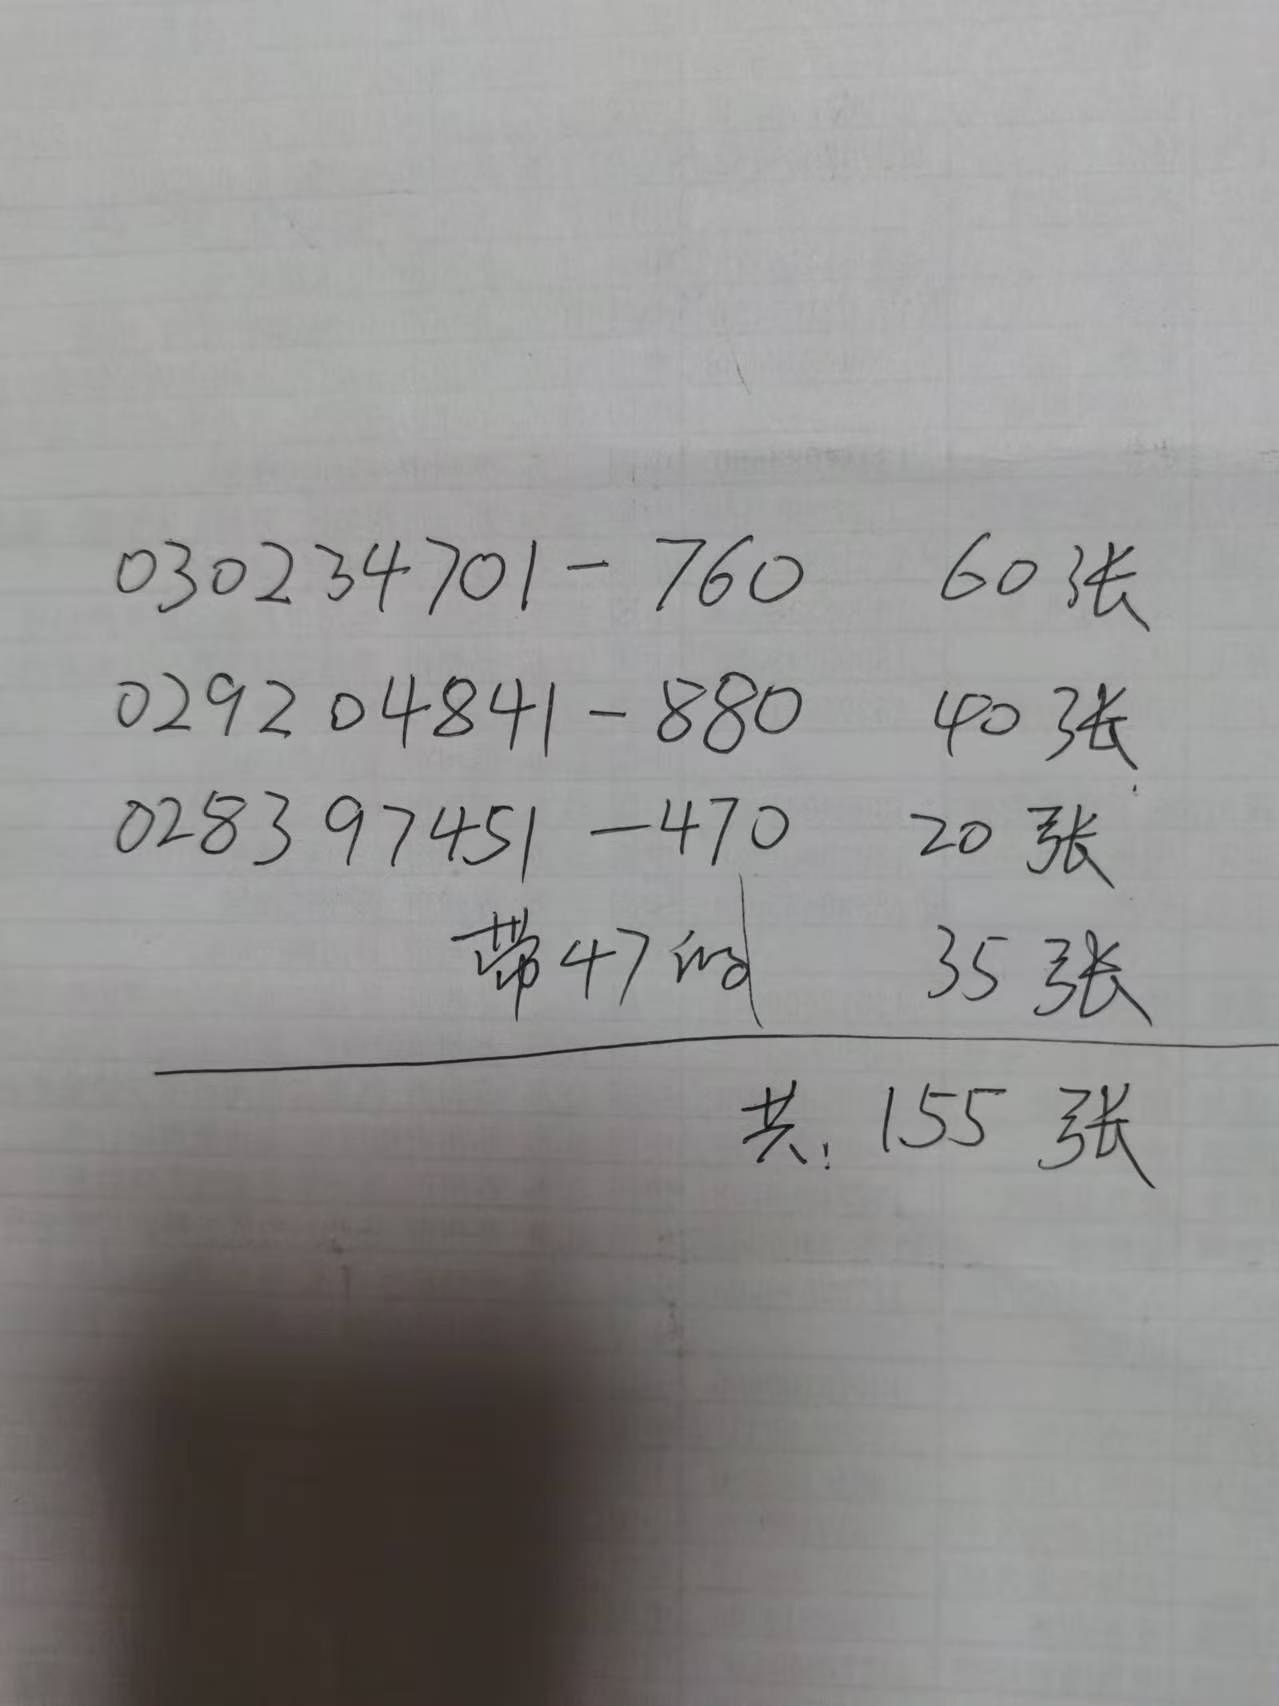 030234701-760 60张
029204841-880 40张
028397451-470 20张
带47的 35张
共: 155张